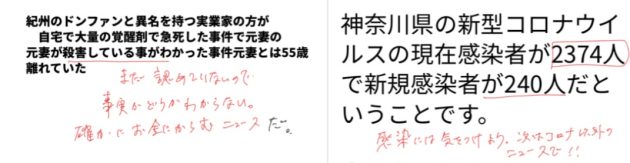 紀州のドンファンと異名を持つ実業家の方が
自宅で大量の覚醒剤で急死した事件で元妻の
元妻が殺害している事がわかった事件元妻とは55歳
離れていた
まだ認めていないので
事実かどうかわからない。
確かにお金にからむニュースだ。
神奈川県の新型コロナウイ
ルスの現在感染者が2374人
で新規感染者が240人だと
いうことです。
感染には気をつけよう。次はコロナ以外の
ニュースで!!